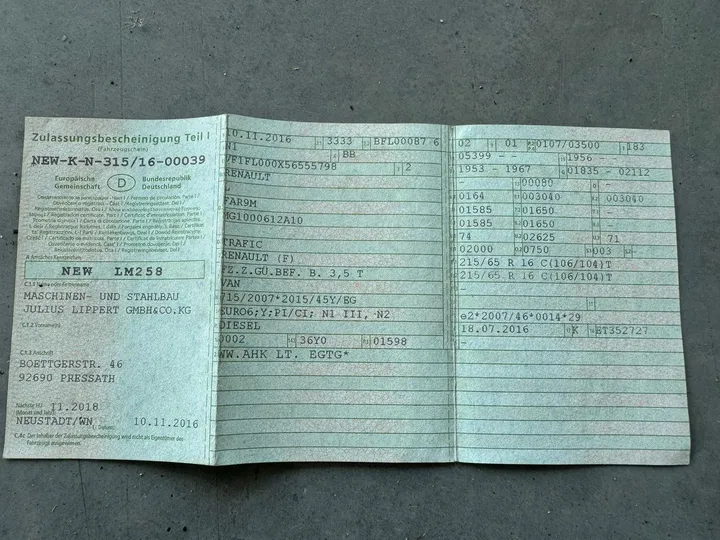 Zulassungsbescheinigung Teil I
(Fahrzeugschein)
NEW-K-N-315/16-00039
Europäische Gemeinschaft D Bundesrepublik Deutschland
Amtliches Kennzeichen
NEW LM258
C.1.1 Name oder Firmenname
MASCHINEN- UND STAHLBAU
JULIUS LIPPERT GMBH&CO.KG
C.1.2 Vorname(n)
C.1.3 Anschrift
BOETTGERSTR. 46
92690 PRESSATH
Nächste HU 11.2018
(Monat und Jahr)
NEUSTADT/WN 10.11.2016
Datum:
C.4c Der Inhaber der Zulassungsbescheinigung wird nicht als Eigentümer des
Fahrzeugs ausgewiesen.
10.11.2016 3333 BFL00087 6
N1 BB
VF1FL000X56555798 2
RENAULT
L
FAR9M
MG1000612A10
-
TRAFIC
RENAULT (F)
FZ.Z.GÜ.BEF. B. 3,5 T
VAN
715/2007*2015/45Y/EG
EURO6;Y;PI/CI; N1 III, N2
DIESEL
0002 36Y0 01598
WW.AHK LT. EGTG*
02 01 0107/03500 183
05399 - - 1956 -
1953 - 1967 01835 - 02112
- 00080 -
0164 003040 003040
01585 01650 -
01585 01650 -
74 02625 71
02000 0750 003 -
215/65 R 16 C(106/104)T
215/65 R 16 C(106/104)T
-
e2*2007/46*0014*29
18.07.2016 K ET352727
-